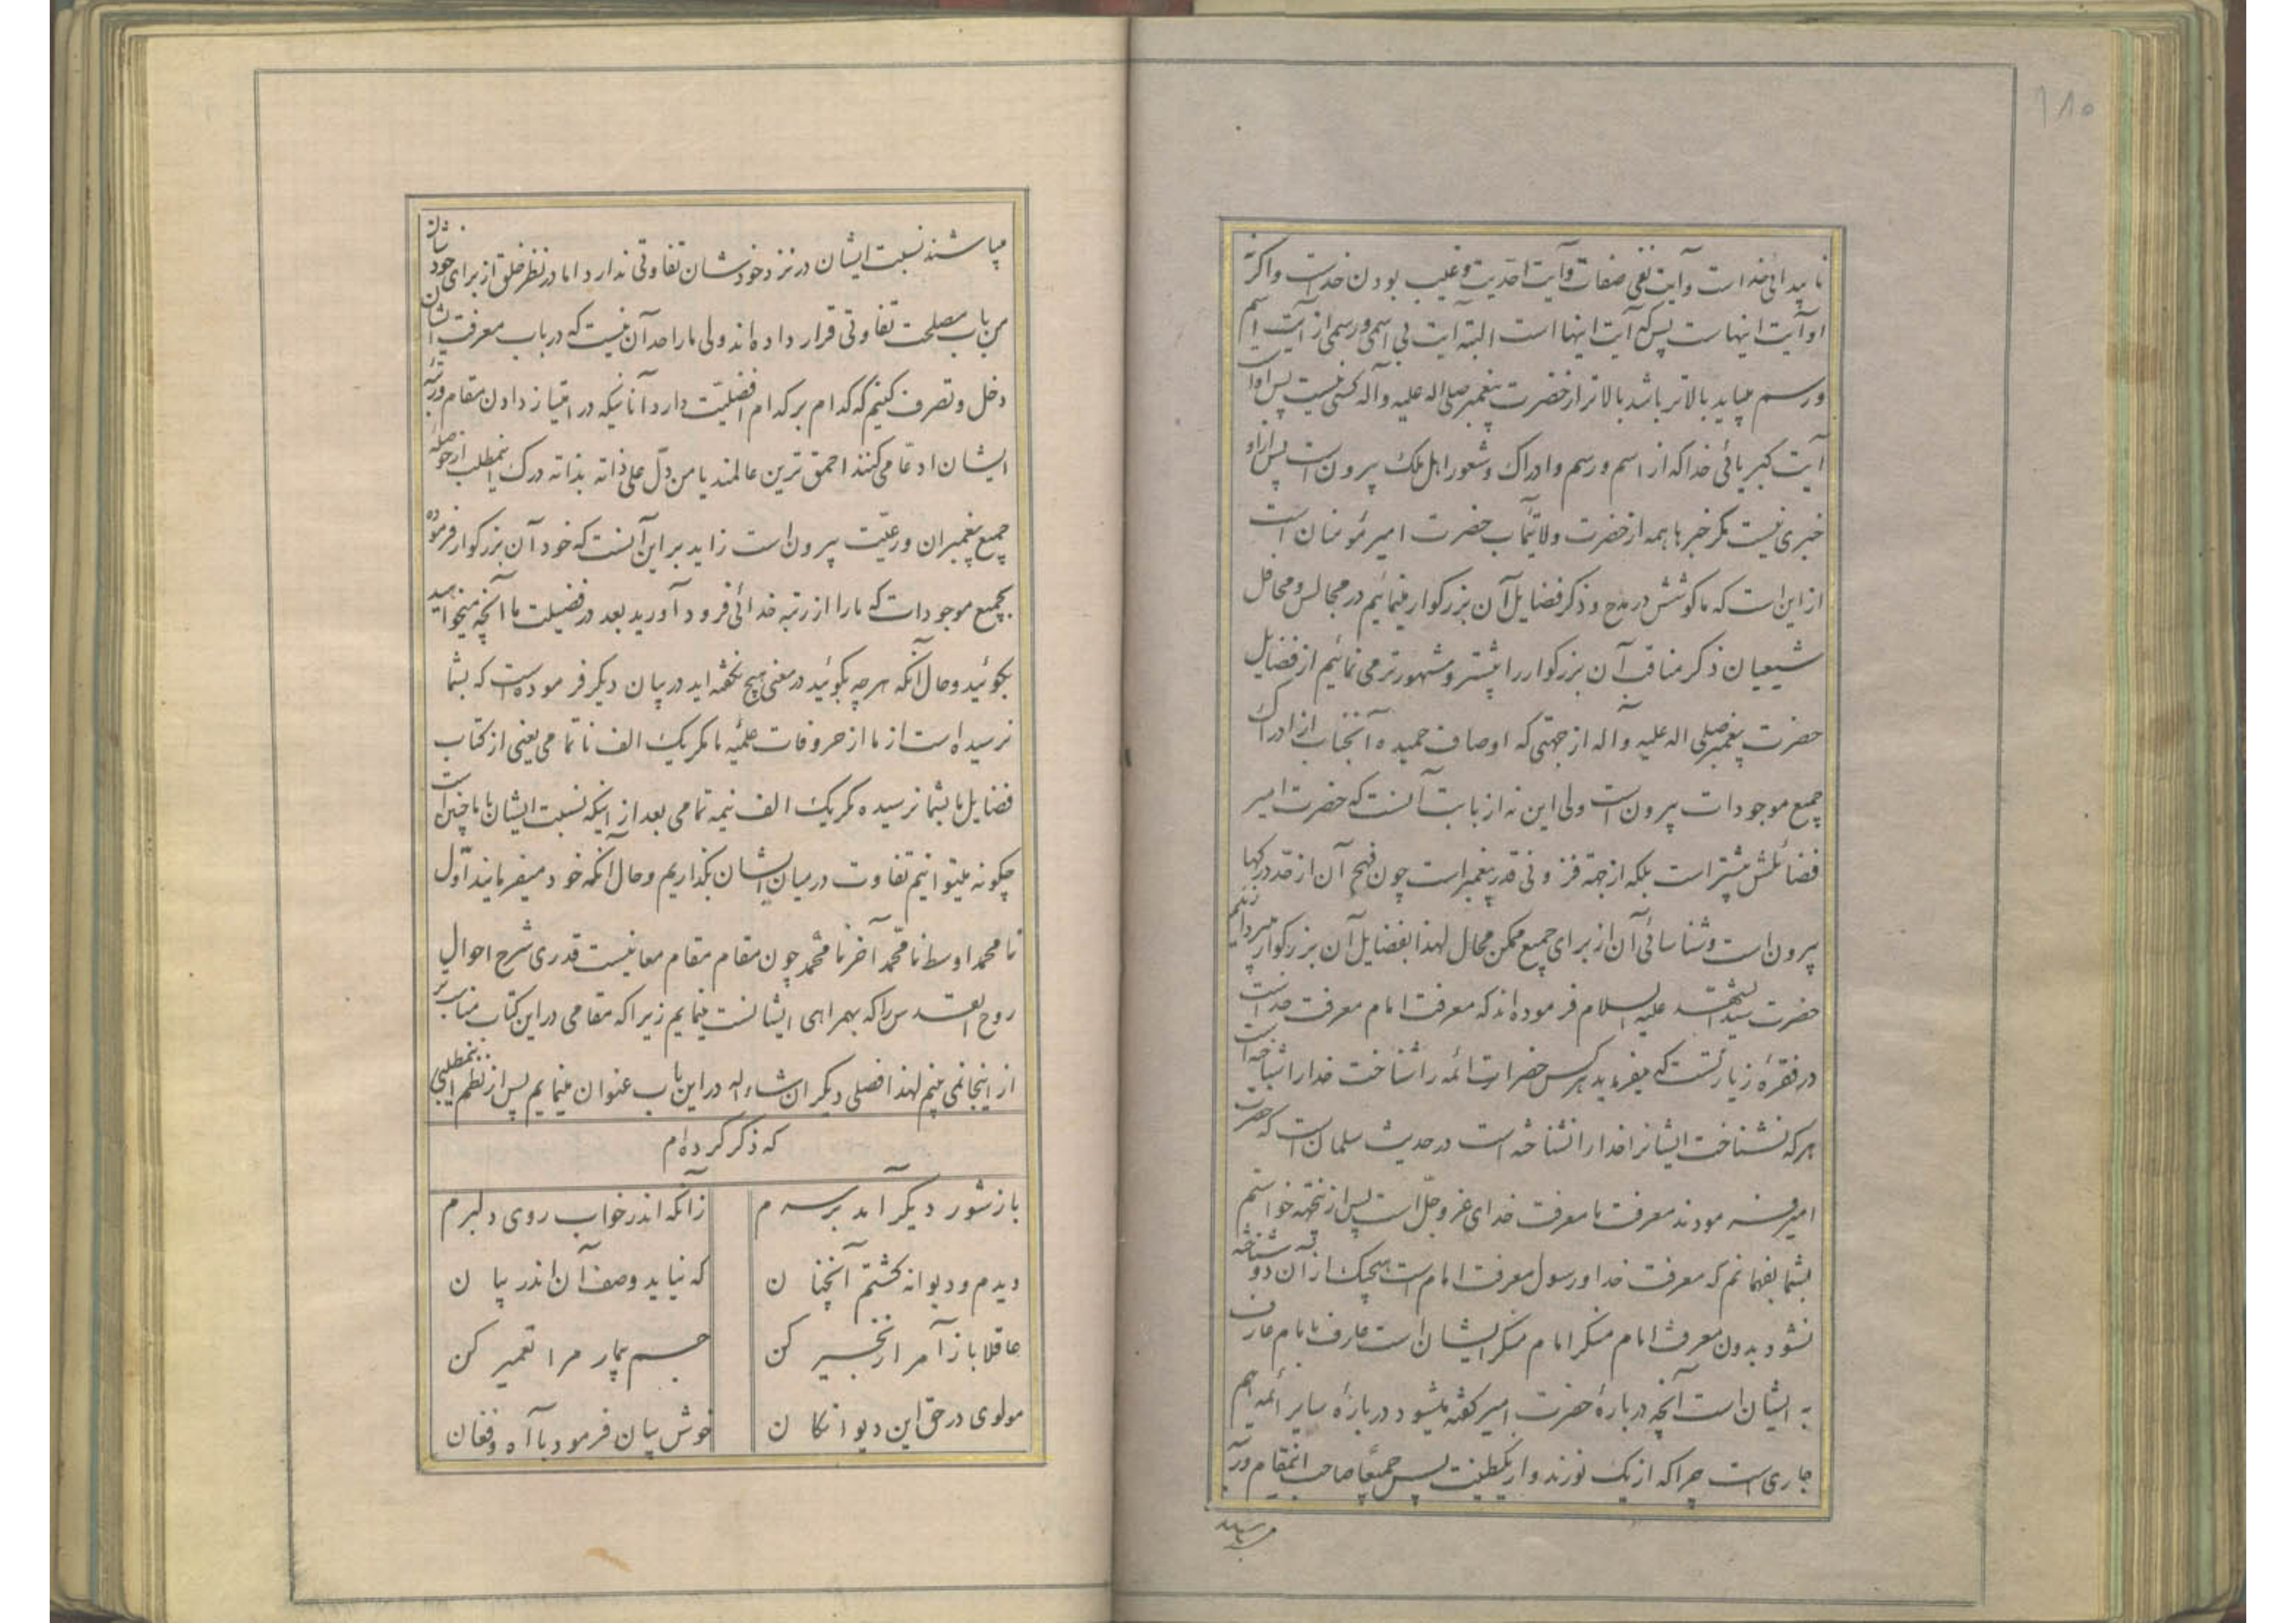 ۱۸۵
ناپیدائی خداست و آیت نفی صفات و آیت احدیت و غیب بودن خداست و اگر نه
او آیت اینهاست پس که آیت اینها است البته آیت بی اسمی و رسمی از آیت اسم
و رسم میباید بالاتر باشد بالاتر از حضرت پیغمبر صلی اله علیه و آله کسی نیست پس اوست
آیت کبریائی خدا که از اسم و رسم و ادراک و شعور اهل ملک بیرونست پس از او
خبری نیست مگر خبرها همه از حضرت ولایتمآب حضرت امیرمؤمنان است
از این است که ما کوشش در مدح و ذکر فضایل آن بزرگوار مینمائیم در مجالس و محافل
شیعیان ذکر مناقب آن بزرگوار را بیشتر و مشهورتر می نمائیم از فضایل
حضرت پیغمبر صلی اله علیه و آله از جهتی که اوصاف حمیده آنجناب از ادراک
جمیع موجودات بیرونست ولی این نه از بابت آنست که حضرت امیر
فضائلش بیشتر است بلکه از جهة فزونی قدر پیغمبر است چون فهم آن از قد درکها
بیرون است و شناسائی آن از برای جمیع ممکن محال لهذا بفضایل آن بزرگوار میپردازیم
حضرت سید الشهدا علیه السلام فرموده اند که معرفت امام معرفت خداست
در فقرهٔ زیارتست که میفرماید هرکس حضرات ائمه را شناخت خدا را شناخته است
هر که نشناخت ایشانرا خدا را نشناخته است در حدیث سلمان است که حضرت
امیر فرمودند معرفت ما معرفت خدای عز و جل است پس از نجهة خواستم
بشما بفهمانم که معرفت خدا و رسول معرفت امام است هیچیک از آن دو شناخته
نشود بدون معرفت امام منکر امام منکر ایشان است عارف بامام عارف
به ایشان است آنچه دربارهٔ حضرت امیر گفته میشود دربارهٔ سایر ائمه هم
جاری است چرا که از یک نورند و از یکطینت پس جمیعا صاحب اینمقام و رتبه
میباشند
میباشند نسبت ایشان در نزد خودشان تفاوتی ندارد اما در نظر خلق از برای خودشان
من باب مصلحت تفاوتی قرار داده اند ولی ما را حد آن نیست که در باب معرفت ایشان
دخل و تصرف کنیم که کدام بر کدام افضلیت دارد آنانیکه در امتیاز دادن مقام و رتبه
ایشان ادعا می کنند احمق ترین عالمند یا من دلّ علی ذاته بذاته درک اینمطلب از حوصله
جمیع پیغمبران و رعیت بیرون است زاید بر این آنست که خود آن بزرگوار فرموده
بجمیع موجودات که ما را از رتبه خدائی فرود آورید بعد در فضیلت ما آنچه میخواهید
بگوئید و حال آنکه هرچه بگوئید در معنی هیچ نگفته اید در بیان دیگر فرموده است که بشما
نرسیده است از ما از حروفات علمیه ما مگر یک الف ناتمامی یعنی از کتاب
فضایل ما بشما نرسیده مگر یک الف نیمه تمامی بعد از اینکه نسبت ایشان با ما چنین است
چگونه میتوانیم تفاوت در میان ایشان بگذاریم و حال آنکه خود میفرمایند اوّل
نا محمد اوسطنا محمّد آخرنا محمّد چون مقام مقام معانیست قدری شرح احوال
روح القدس را که بهمراهی ایشانست مینمایم زیرا که مقامی در این کتاب مناسب تر
از اینجا نمی بینم لهذا فصلی دیگر ان شاء اله در این باب عنوان مینمایم پس از نظم اینمطلبی
که ذکر کرده ام
باز شور دیگر آمد بر سرم    زآنکه اندر خواب روی دلبرم
دیدم و دیوانه گشتم آنچنان    که نیاید وصف آن اندر بیان
عاقلا باز آ مرا زنجیر کن    جسم بیمار مرا تعمیر کن
مولوی در حق این دیوانگان    خوش بیان فرمود با آه و فغان